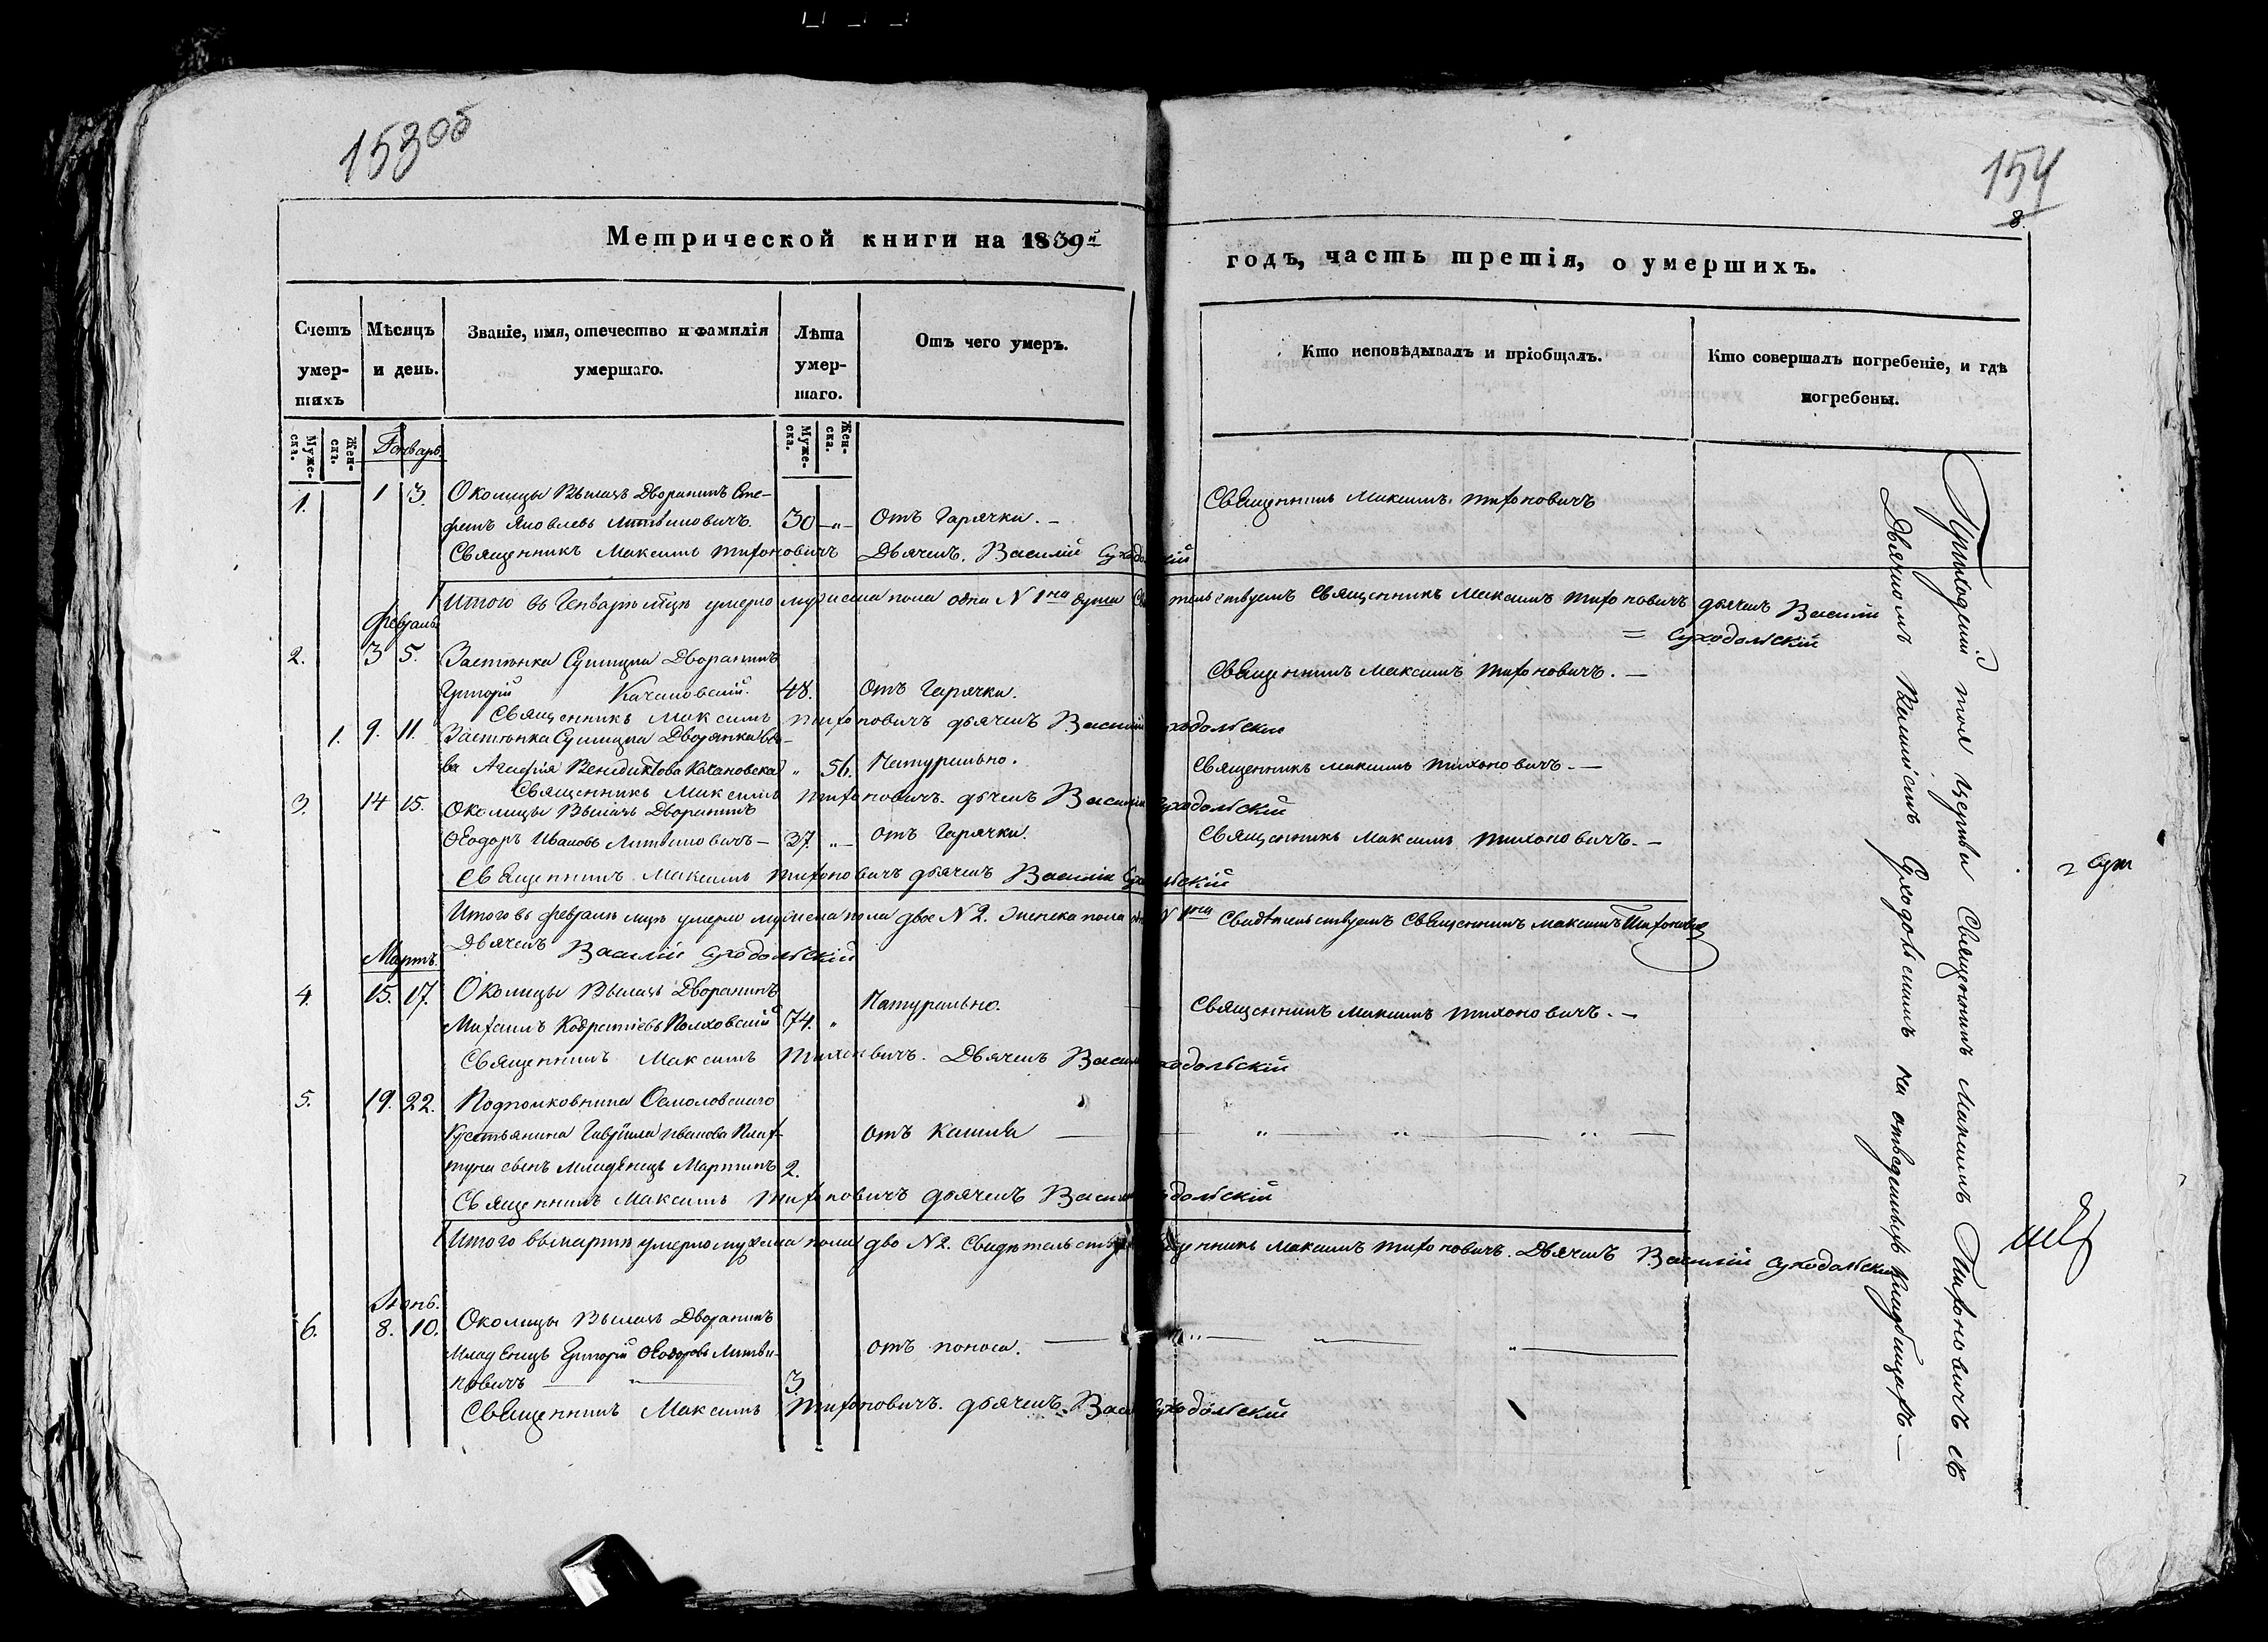 153об
154
8.
Метрической книги на 1839й
годъ, часть третія, о умершихъ.
Счетъ умер-
шихъ
Мѣсяцъ
и день.
Званіе, имя, отечество и фамилія
умершаго.
Лѣта
умер-
шаго.
Отъ чего умеръ.
Кто исповѣдывалъ и пріобщалъ.
Кто совершалъ погребеніе, и гдѣ
погребены.
Муже-
ска.
Жен-
ска.
Муже-
ска.
Жен-
ска.
Генварь
1. 1 3. Околицы Вымачь Дворанинъ Сте-
фанъ Яковлевъ Литвиновичъ. 30 — „ — Отъ Гарячки. —
Священникъ Максимъ Тихоновичъ
Священникъ Максимъ Тихоновичъ Дьячекъ. Василій Суходольскій
Итого въ Генварѣ мцѣ умерло мужеска пола одна N 1на душа Священникъ Максимъ Тихоновичъ дьячекъ Василій
= Суходольскій
Февраль
2. 3 5. Застѣнка Сушицка Дворанинъ
Григорій Качановскій. 48. Отъ Гарячки.
Священникъ Максимъ Тихоновичъ. —
Священникъ Максимъ Тихоновичъ дьячекъ Василій Суходольскій
1. 9. 11. Застѣнка Сушицка Дворянка вдо-
ва Агафія Венедиктова Качановска „ 56. Натурально.
Священникъ Максимъ Тихоновичъ. —
Священникъ Максимъ Тихоновичъ. дьячекъ Василій Суходольскій
3. 14 15. Околицы Вымачь Дворанинъ
Ѳеодоръ Ивановъ Литвиновичъ — 37. „ — отъ Гарячки.
Священникъ Максимъ Тихоновичъ. —
Священникъ Максимъ Тихоновичъ дьячекъ Василій Суходольскій
Итого въ Февралѣ мцѣ умерло мужеска пола двое N 2. Женска пола N 1на Свидѣтельствуемъ Священникъ Максимъ Тихоновичъ
Дьячекъ Василій Суходольскій
Мартъ.
4. 15. 17. Околицы Вымачь Дворанинъ
Михаилъ Кодратіевъ Полховскій 74. „ Натурально.
Священникъ Максимъ Тихоновичъ. —
Священникъ Максимъ Тихоновичъ. Дьячекъ Василій Суходольскій
5. 19. 22. Подполковника Осмоловскаго
Крестьянина Гаврiила Иванова
сынъ младенецъ Мартинъ 2. отъ Кашля — „ — „ — „ —
Священникъ Максимъ Тихоновичъ дьячекъ Василій Суходольскій
Итого въ Мартѣ умерло мужеска пола дво N 2. Свидѣтельствуемъ Священникъ Максимъ Тихоновичъ. Дьячекъ Василій Суходольскій
6. 8. 10. Околицы Вымачь Дворанинъ
Младенецъ Григорій Ѳеодоровъ Литви-
новичъ — „ — 3. отъ поноса. — „ — „ — „ —
Священникъ Максимъ Тихоновичъ. дьячекъ. Василій Суходольскій
тоя церкви Священникъ Максимъ Тихоновичъ съ
Дьячкомъ Василіемъ Суходольскимъ на отведенныхъ кладбищахъ. —